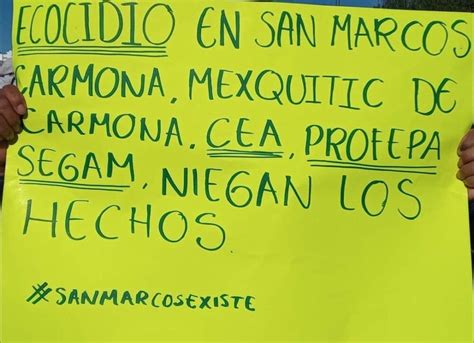 ECOCIDIO EN SAN MARCOS
CARMONA, MEXQUITIC DE
CARMONA. CEA, PROFEPA
SEGAM, NIEGAN LOS
HECHOS
#SANMARCOSEXISTE